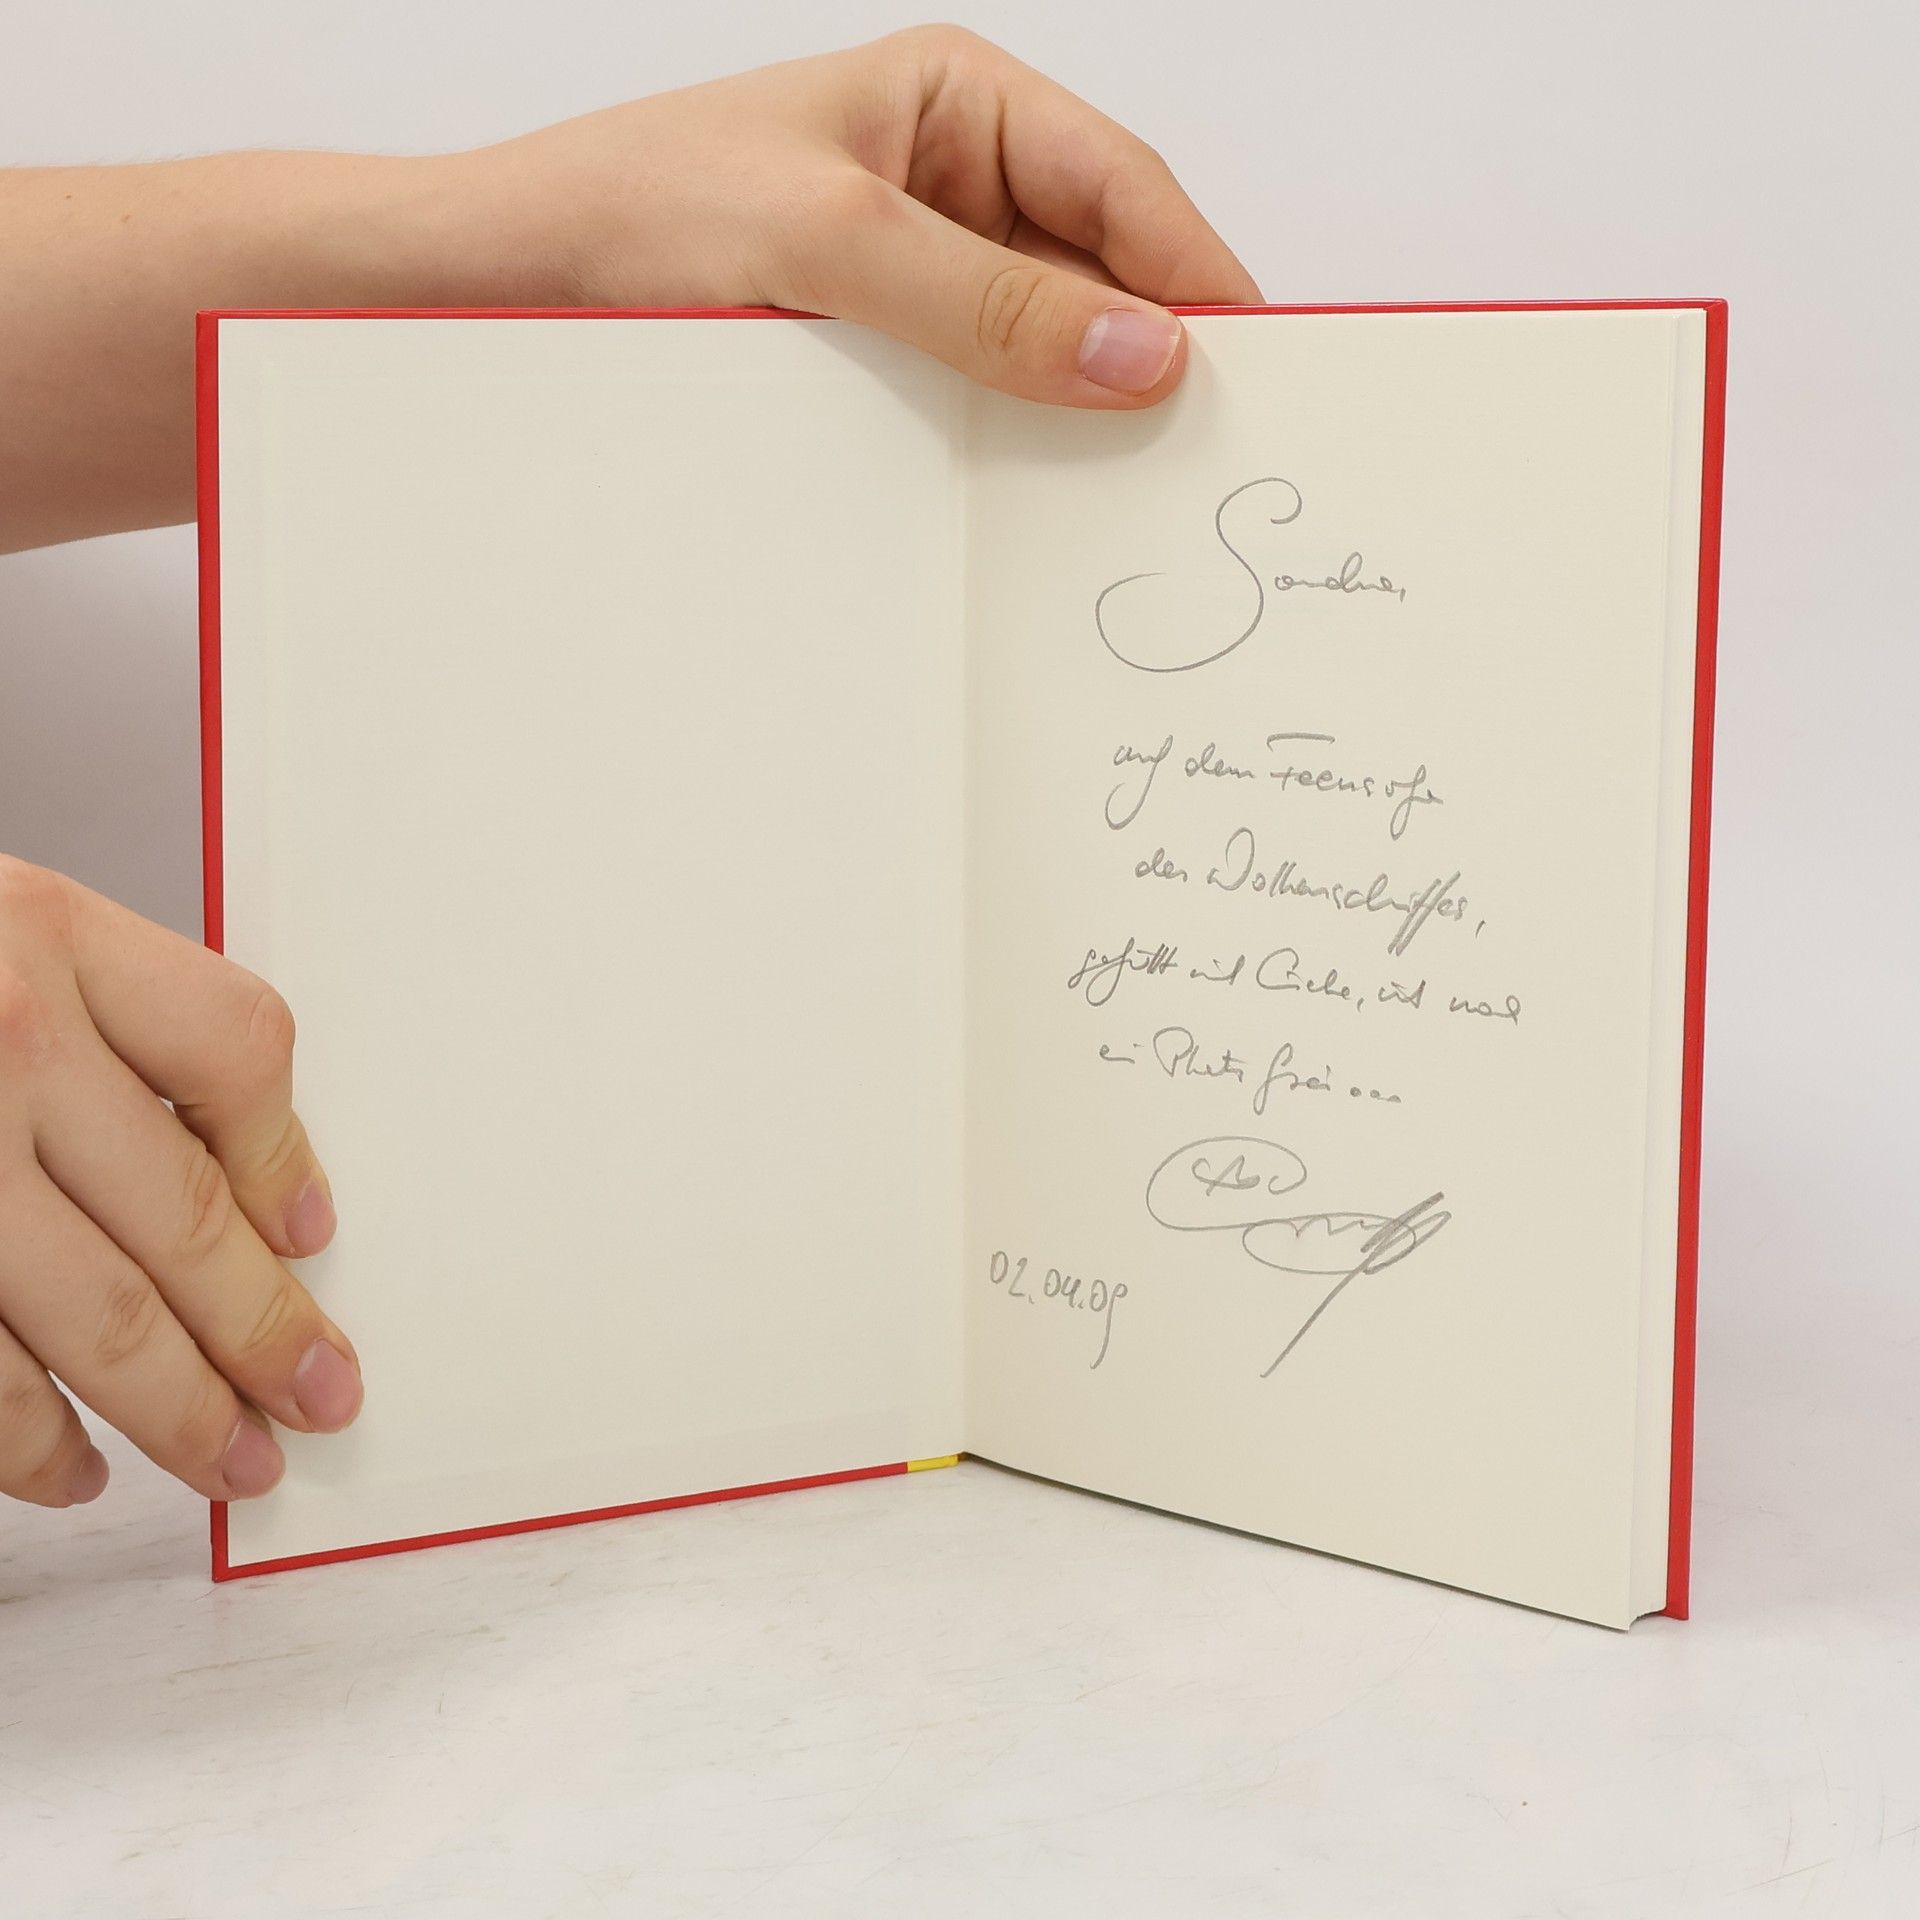 Sandra,
auf dem Feensofa
des Wolkenschiffes,
gefüllt mit Liebe, ist noch
ein Platz frei ...
02.04.09